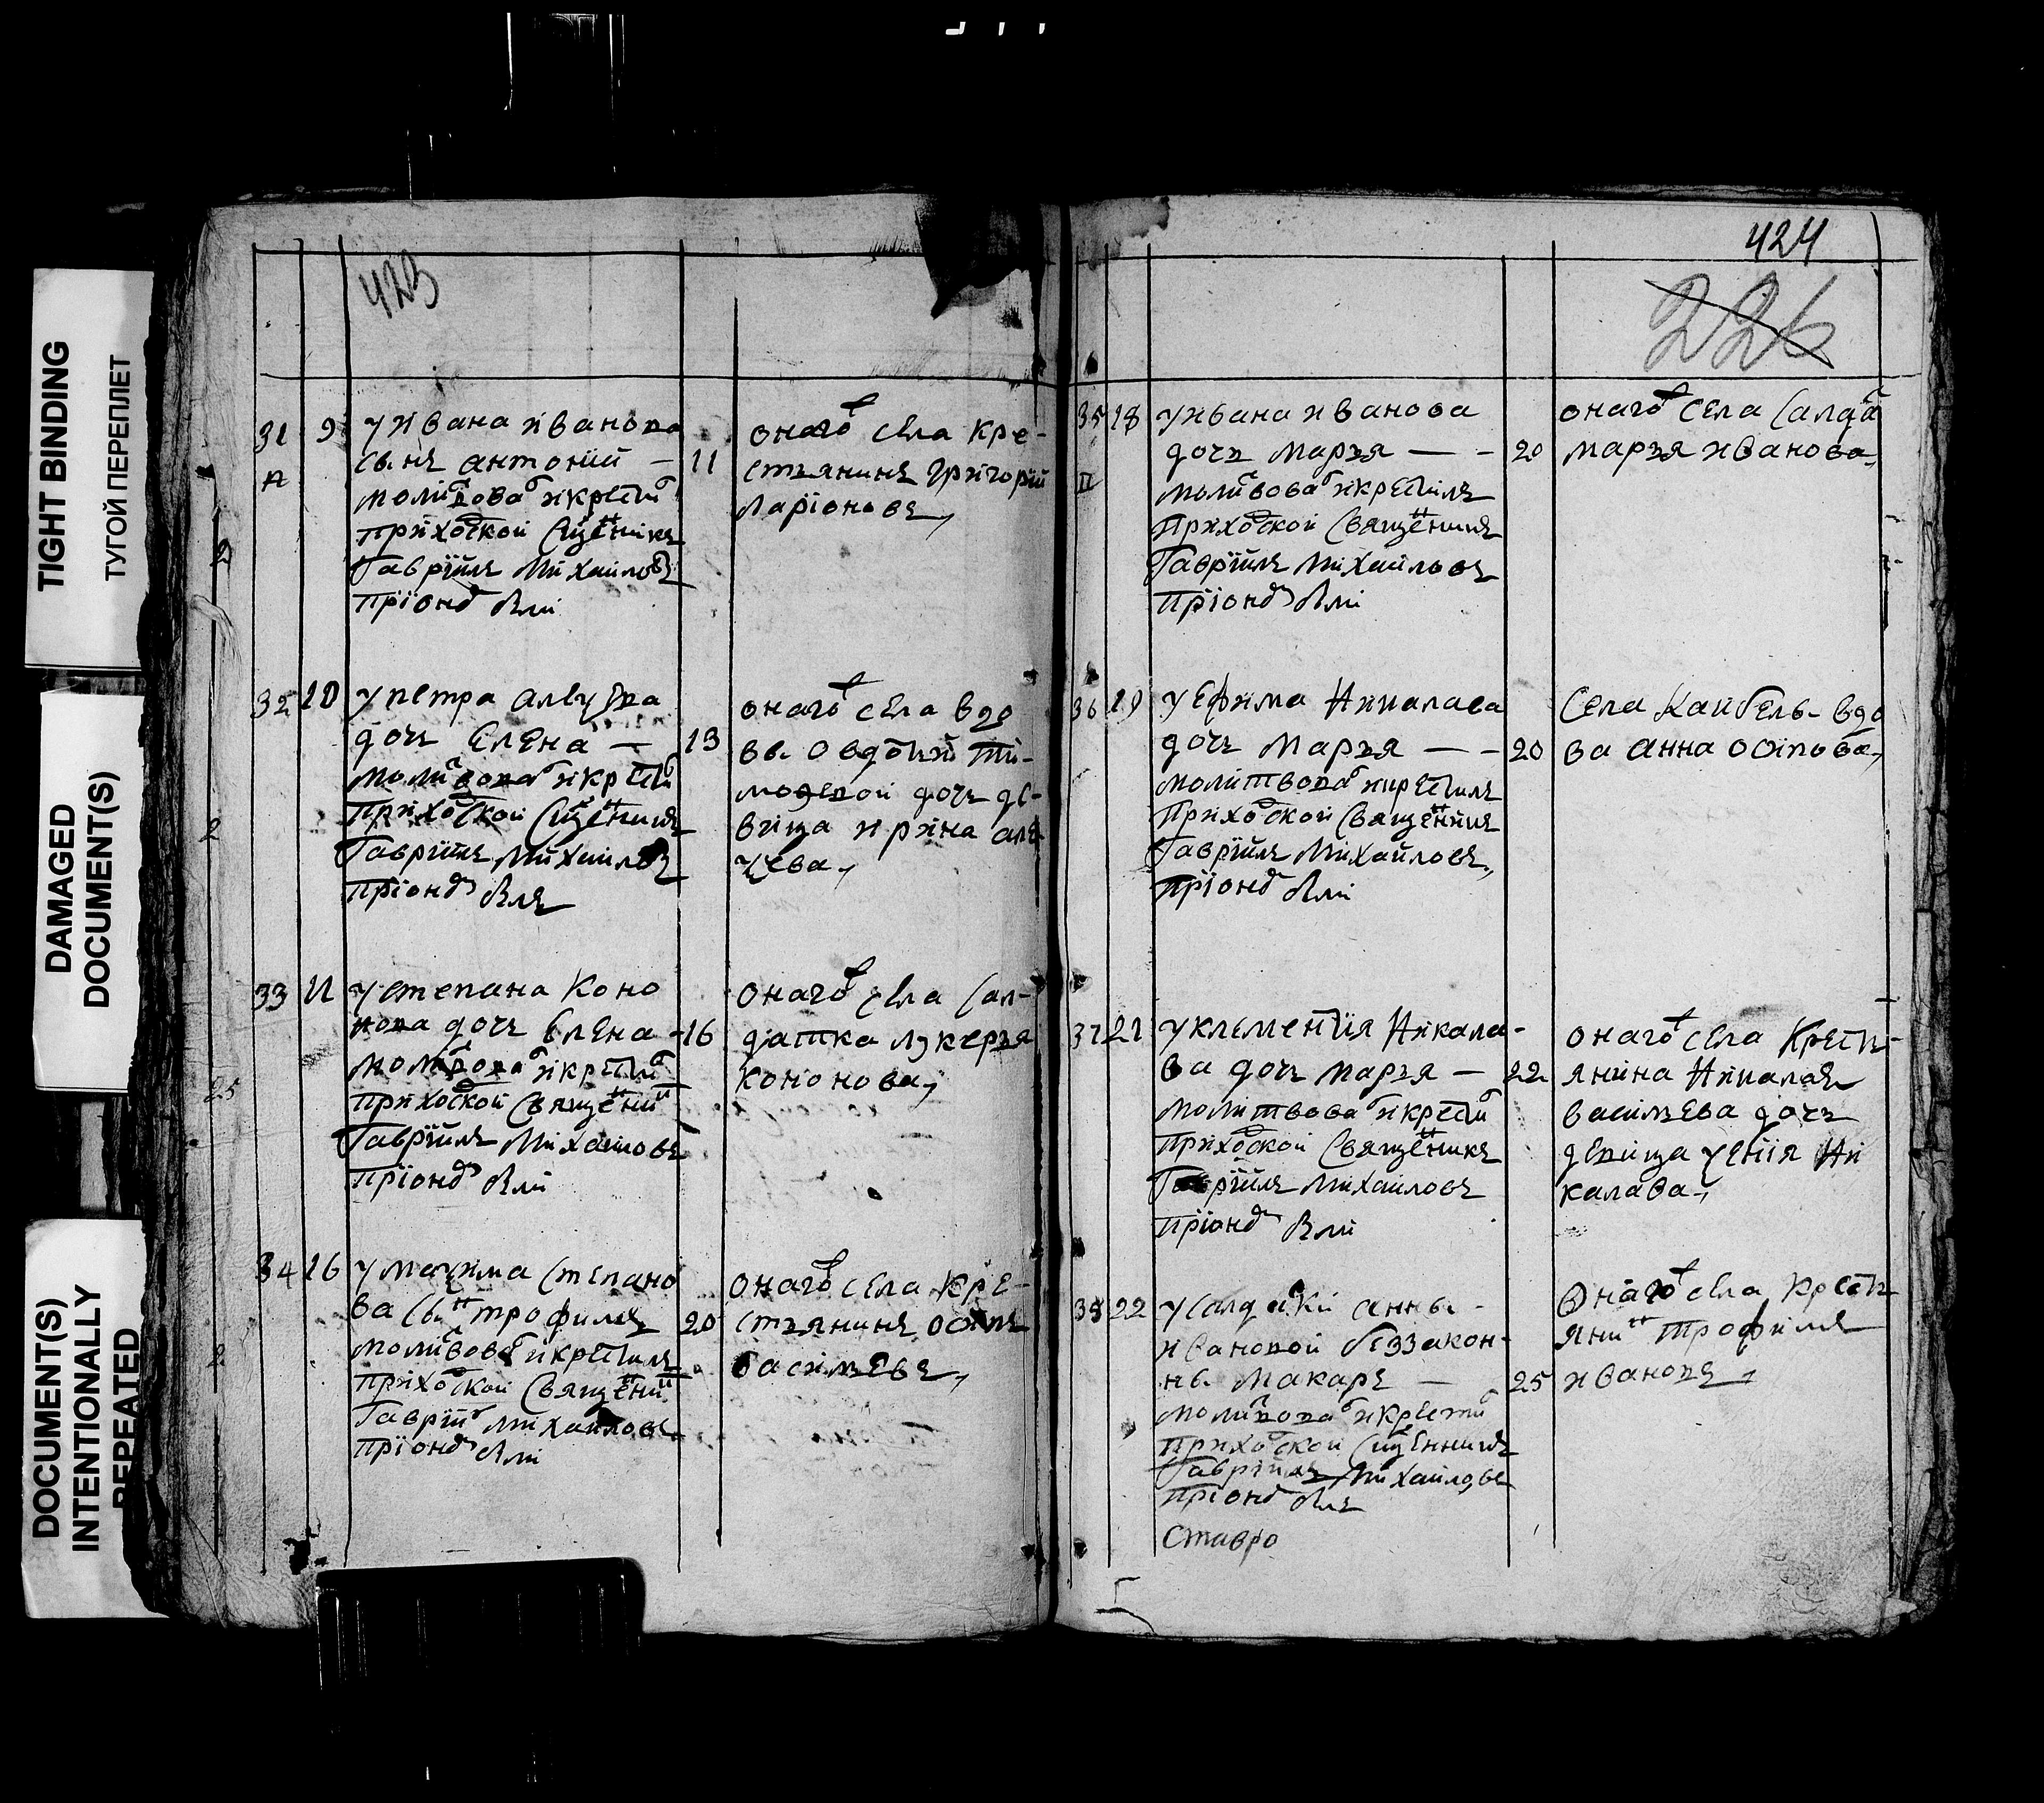 TIGHT BINDING
ТУГОЙ ПЕРЕПЛЕТ
DAMAGED
DOCUMENT(S)
DOCUMENT(S)
INTENTIONALLY
REPEATED
423
31 9 у ивана иванова
сынъ антонии — 11
молитвова и крести
приходской сщенникъ
Гавріилъ михаиловъ
пріонд
онаго села кре-
стьянинъ григории
ларіоновъ,
32 10 у петра
дочь елена — 13
молитвова и крести
приходской сщенникъ
Гавріилъ михаиловъ
пріонд
онаго села вдо
вы овдотьи ти-
дочь де-
вица ирина але
ѯева,
33 11 у степана коно
нова дочь елена - 16
молитвова и крестил
приходской священник
Гавріилъ михаиловъ
пріонд
онаго села сал-
датка лукерья
кононова,
34 16 у маѯима степано
ва сын трофимъ 20
молитвова и крестилъ
приходской священник
Гавріил михаиловъ
пріонд
онаго села кре-
стьянинъ осипъ
васильевъ,
424
226
35 18 у ивана иванова
дочь марья — - 20
молитвова и крестилъ
приходской священникъ
Гавріилъ михаиловъ
пріонд
онаго села салда
марья иванова,
36 19 у ефима николаева
дочь марья — - 20
молитвова и крестилъ
приходской священникъ
Гавріилъ михаиловъ,
пріонд
села кайбелы вдо
ва анна осипова,
37 21 у клементія никала-
ва дочь марья — 22
молитвова и крести
приходской священникъ
Гавріилъ михаиловъ
пріонд
онаго села крестьянина
васильева дочь
девица ѯенія ни
калава,
38 22 у салдаки анны -
ивановой беззакон-
ны макаръ — 25
молитвова и крести
приходской сщенникъ
Гавріилъ михаиловъ
пріонд
ставро
онаго села крестьянин трофимъ
ивановъ,